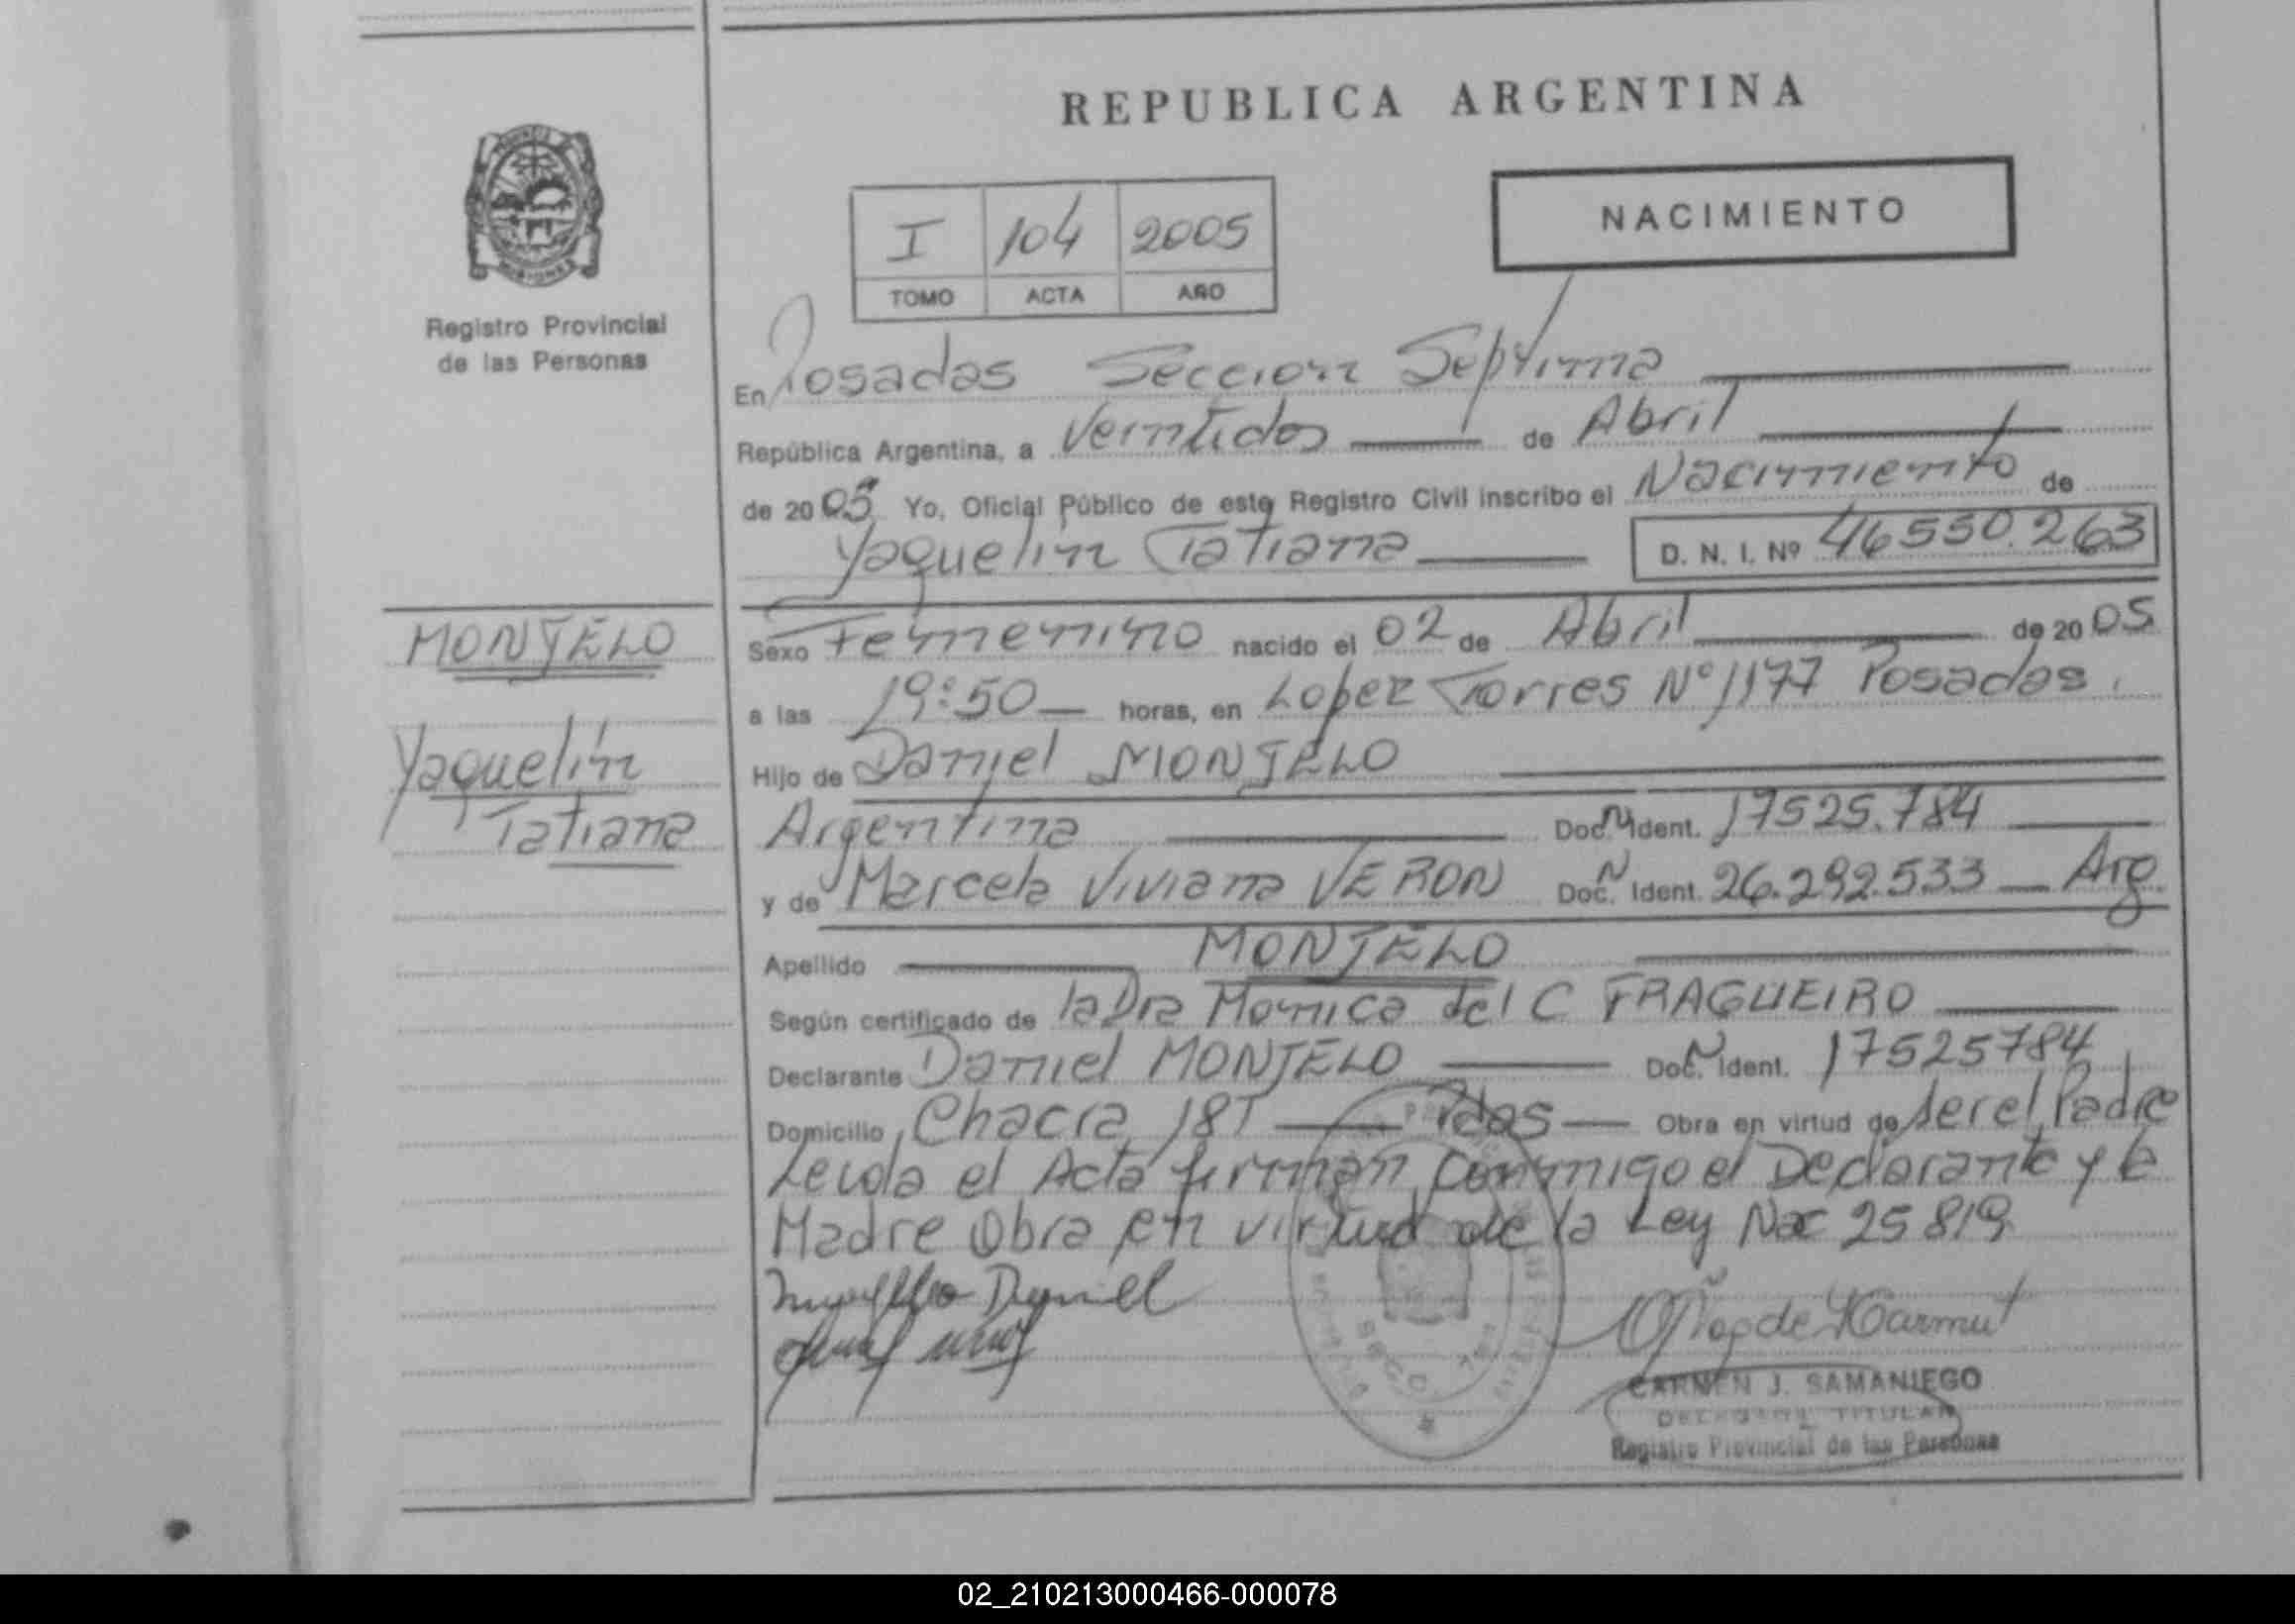 REPUBLICA ARGENTINA
NACIMIENTO
I 104 2005
TOMO ACTA AÑO
Registro Provincial
de las Personas
En Posadas Seccion Septima
República Argentina, a Veintidos de Abril
de 2005 Yo, Oficial Público de este Registro Civil inscribo el Nacimiento de
Yaquelin Tatiana D. N. I. Nº 46550.263
MONJELO
Yaquelin
Tatiana
Sexo Femenino nacido el 02 de Abril de 2005
a las 19:50 horas, en Lopez Torres Nº 1177 Posadas.
Hijo de Daniel MONJELO
Argentina Doc. Ident. 17525.784
y de Marcela Viviana VERON Doc. Ident. 26.292.533 Arg
Apellido MONJELO
Según certificado de la Dra Monica del C FRAGUEIRO
Declarante Daniel MONJELO Doc. Ident. 17525784
Domicilio Chacra 181 Pdas Obra en virtud de ser el Padre
Leida el Acta firman conmigo el Declarante y la
Madre Obra en virtud de la Ley Nac 25819
Daniel
CARMEN J. SAMANIEGO
TITULAR
Registro Provincial de las Personas
02_210213000466-000078